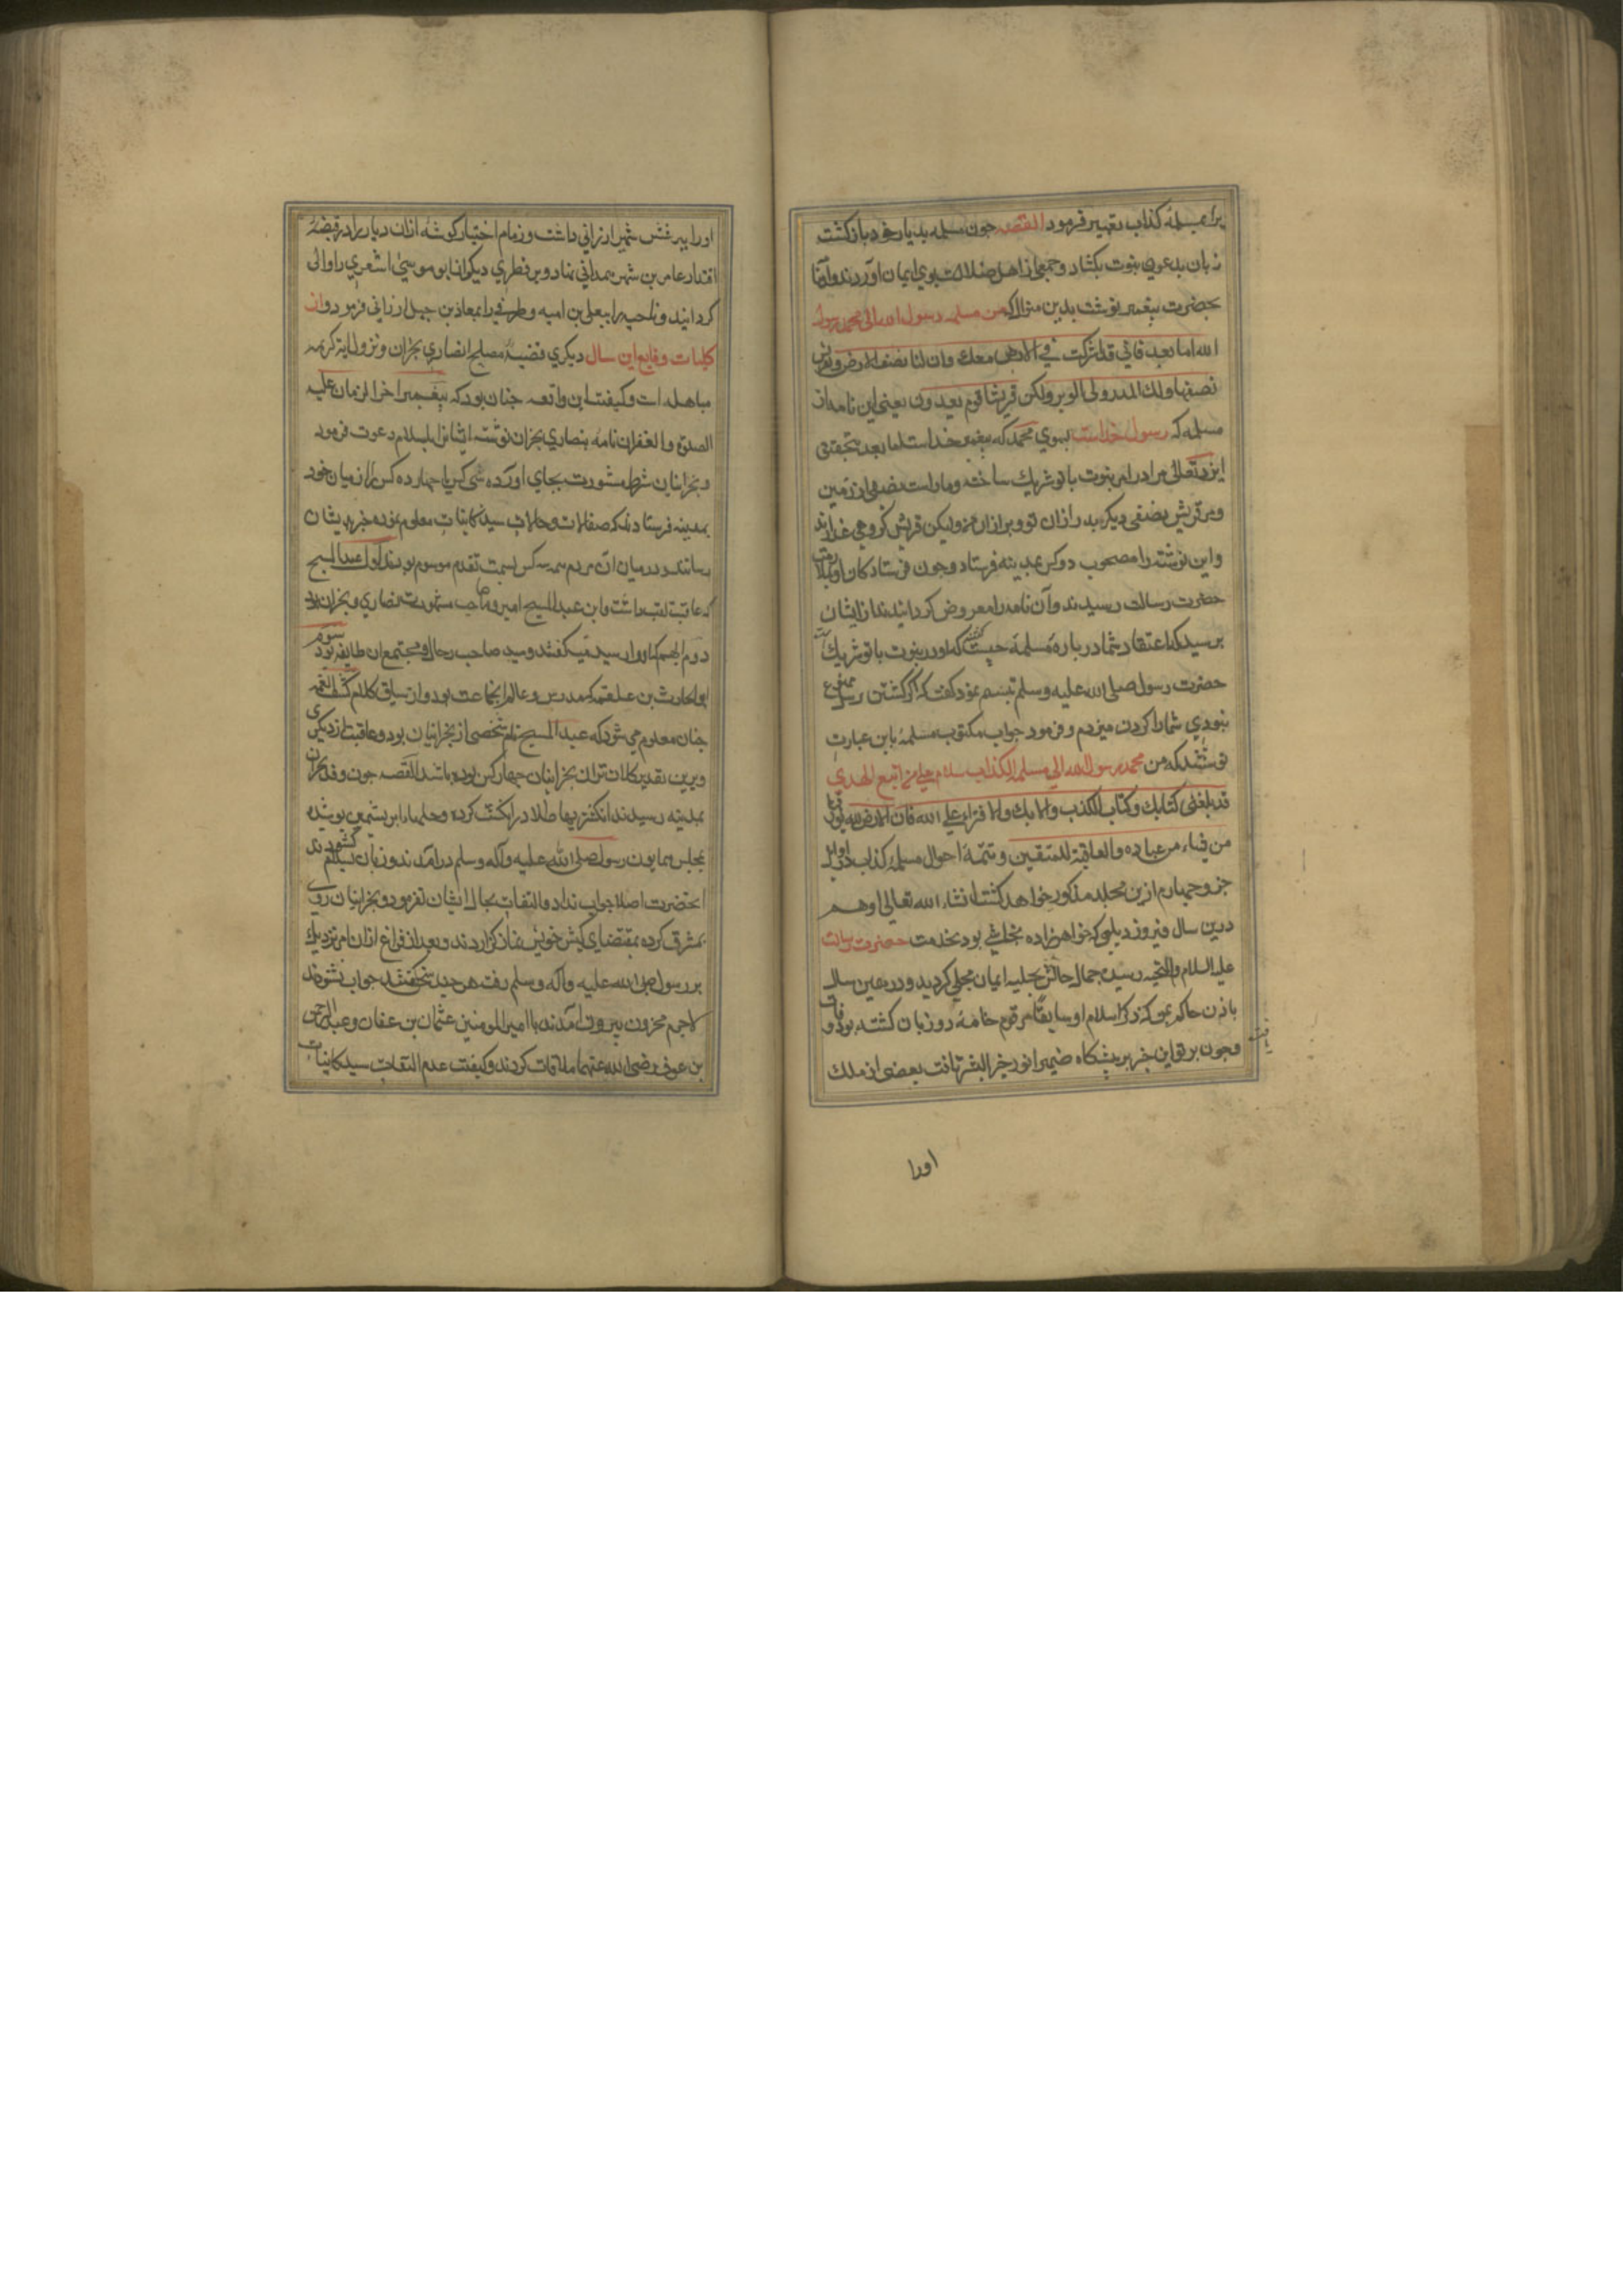 براء مسلمهٔ کذاب تعبیر فرمود القصه جون مسلمه بدیار خود بازکشت
زبان بدعوی نبوت بکشاد و جمعی از اهل ضلالت بوی ایمان آوردند و آنکا
بحضرت پیغمبر نوشت بدین منوال که من مسلمه رسول الله الی محمد رسول
الله اما بعد فانی قد اشرکت فی الارض معك وان لنا نصف الارض و لقریش
نصفها ولك المدر ولی الوبر ولکن قریشا قوم یعدون یعنی این نامه از
مسلمه که رسول خداست بسوی محمد که پیغمبر خداست اما بعد بتحقیق
ایزد تعالی مرا در امر نبوت با تو شریك ساخته و ماراست نصفی از زمین
و مر قریش نصفی دیکر مدر از ان تو و وبر از ان من ولیکن قریش کروهی غدارند
و این نوشته را مصحوب دو کس بمدینه فرستاد و جون فرستادکان او بملازمت
حضرت رسالت رسیدند و آن نامه را معروض کردانیدند از ایشان
پرسید که اعتقاد شما درباره مسلمه چیست کفتند که او در نبوت با تو شریك
حضرت رسول صلی الله علیه وسلم تبسم نمود کفت که اکر کشتن رسل ممنوع
نبودی شما را کردن میزدم و فرمود جواب مکتوب مسلمه باین عبارت
نوشتند که من محمد رسول الله الی مسلمه الکذاب سلام علی من اتبع الهدی
قد بلغنی کتابك و کتاب الکذب و الافتراء علی الله فان الارض لله یورثها
من یشاء من عباده والعاقبة للمتقین و تتمهٔ احوال مسلمه کذاب در اوایل
جزو جهارم ازین مجلد مذکور خواهد کشت انشاء الله تعالی وهم
درین سال فیروز دیلمی که خواهرزاده نجاشی بود بخدمت حضرت رسالت
علیه السلام والتحیه رسیده جمال حالش بحلیه ایمان مجلی کردید و در همین سال
باذن حاکم یمن که ذکر اسلام او سابقا مرقوم خامهٔ دو زبان کشته بود وفات
یافت
وجون پرتو این خبر بر پیشکاه ضمیر انور خیر البشر تافت بعضی از ملك
اورا
اورا بپرش شهر ارزانی داشت و زمام اختیار کوشهٔ ازان دیار را در قبضهٔ
اقتدار عامر بن شهر همدانی نهاد و بر قطری دیکر از ان ابو موسی اشعری را والی
کردانید و ناحیه را بیعلی بن امیه و طرفی را بمعاذ بن جبل ارزانی فرمود و از
کلیات وقایع این سال دیکری قضیهٔ مصلح نصاری نجران و نزول ایة کریمه
مباهله است و کیفیت این واقعه جنان بود که پیغمبر اخر الزمان علیه
الصلوة والغفران نامه بنصاری نجران نوشته ایشانرا باسلام دعوت فرمود
و نجرانیان شرط مشورت بجای اورده شی کس یا جهارده کس را از میان خود
بمدینه فرستادند که صفات و حالات سید کاینات معلوم نموده خبر بدیشان
رسانند و درمیان ان مردم سه کس بسمت تقدم موسوم بودند اول عبد المسیح
که عاقب لقب داشت و این عبد المسیح امیر و صاحب مشورت نصاری نجران بود
دوم ایهم که او را سید میکفتند و سید صاحب رحال و مجتمع ان طایفه بود سوم
ابو الحارث بن علقمه که مدرس و عالم انجماعت بود و از سیاق کلام کشف الغمه
جنان معلوم می شود که عبد المسیح نام شخصی از نجرانیان بود و عاقب نام دیکری
و برین تقدیر کلان تران نجرانیان جهار کس بوده باشند القصه جون وفد نجران
بمدینه رسیدند انکشتریها طلا در انکشت کرده و حلها ابریشمین پوشیده
بمجلس همایون رسول صلی الله علیه وآله وسلم درآمدند و زبان بسلام کشودند
انحضرت اصلا جواب نداد و التفات بحال ایشان نفرمود و نجرانیان روی
بمشرق کرده بمقتضای کیش خویش نماز کزاردند و بعد از فراغ ازان امر نزدیك
بر رسول صلی الله علیه واله وسلم رفته هر چند سخن کفتند جواب نشنودند
لاجرم محزون بیرون آمدند با امیر المومنین عثمان بن عفان و عبد الرحمن
بن عوف رضی الله عنهما ملاقات کردند و کیفیت عدم التفات سید کاینات